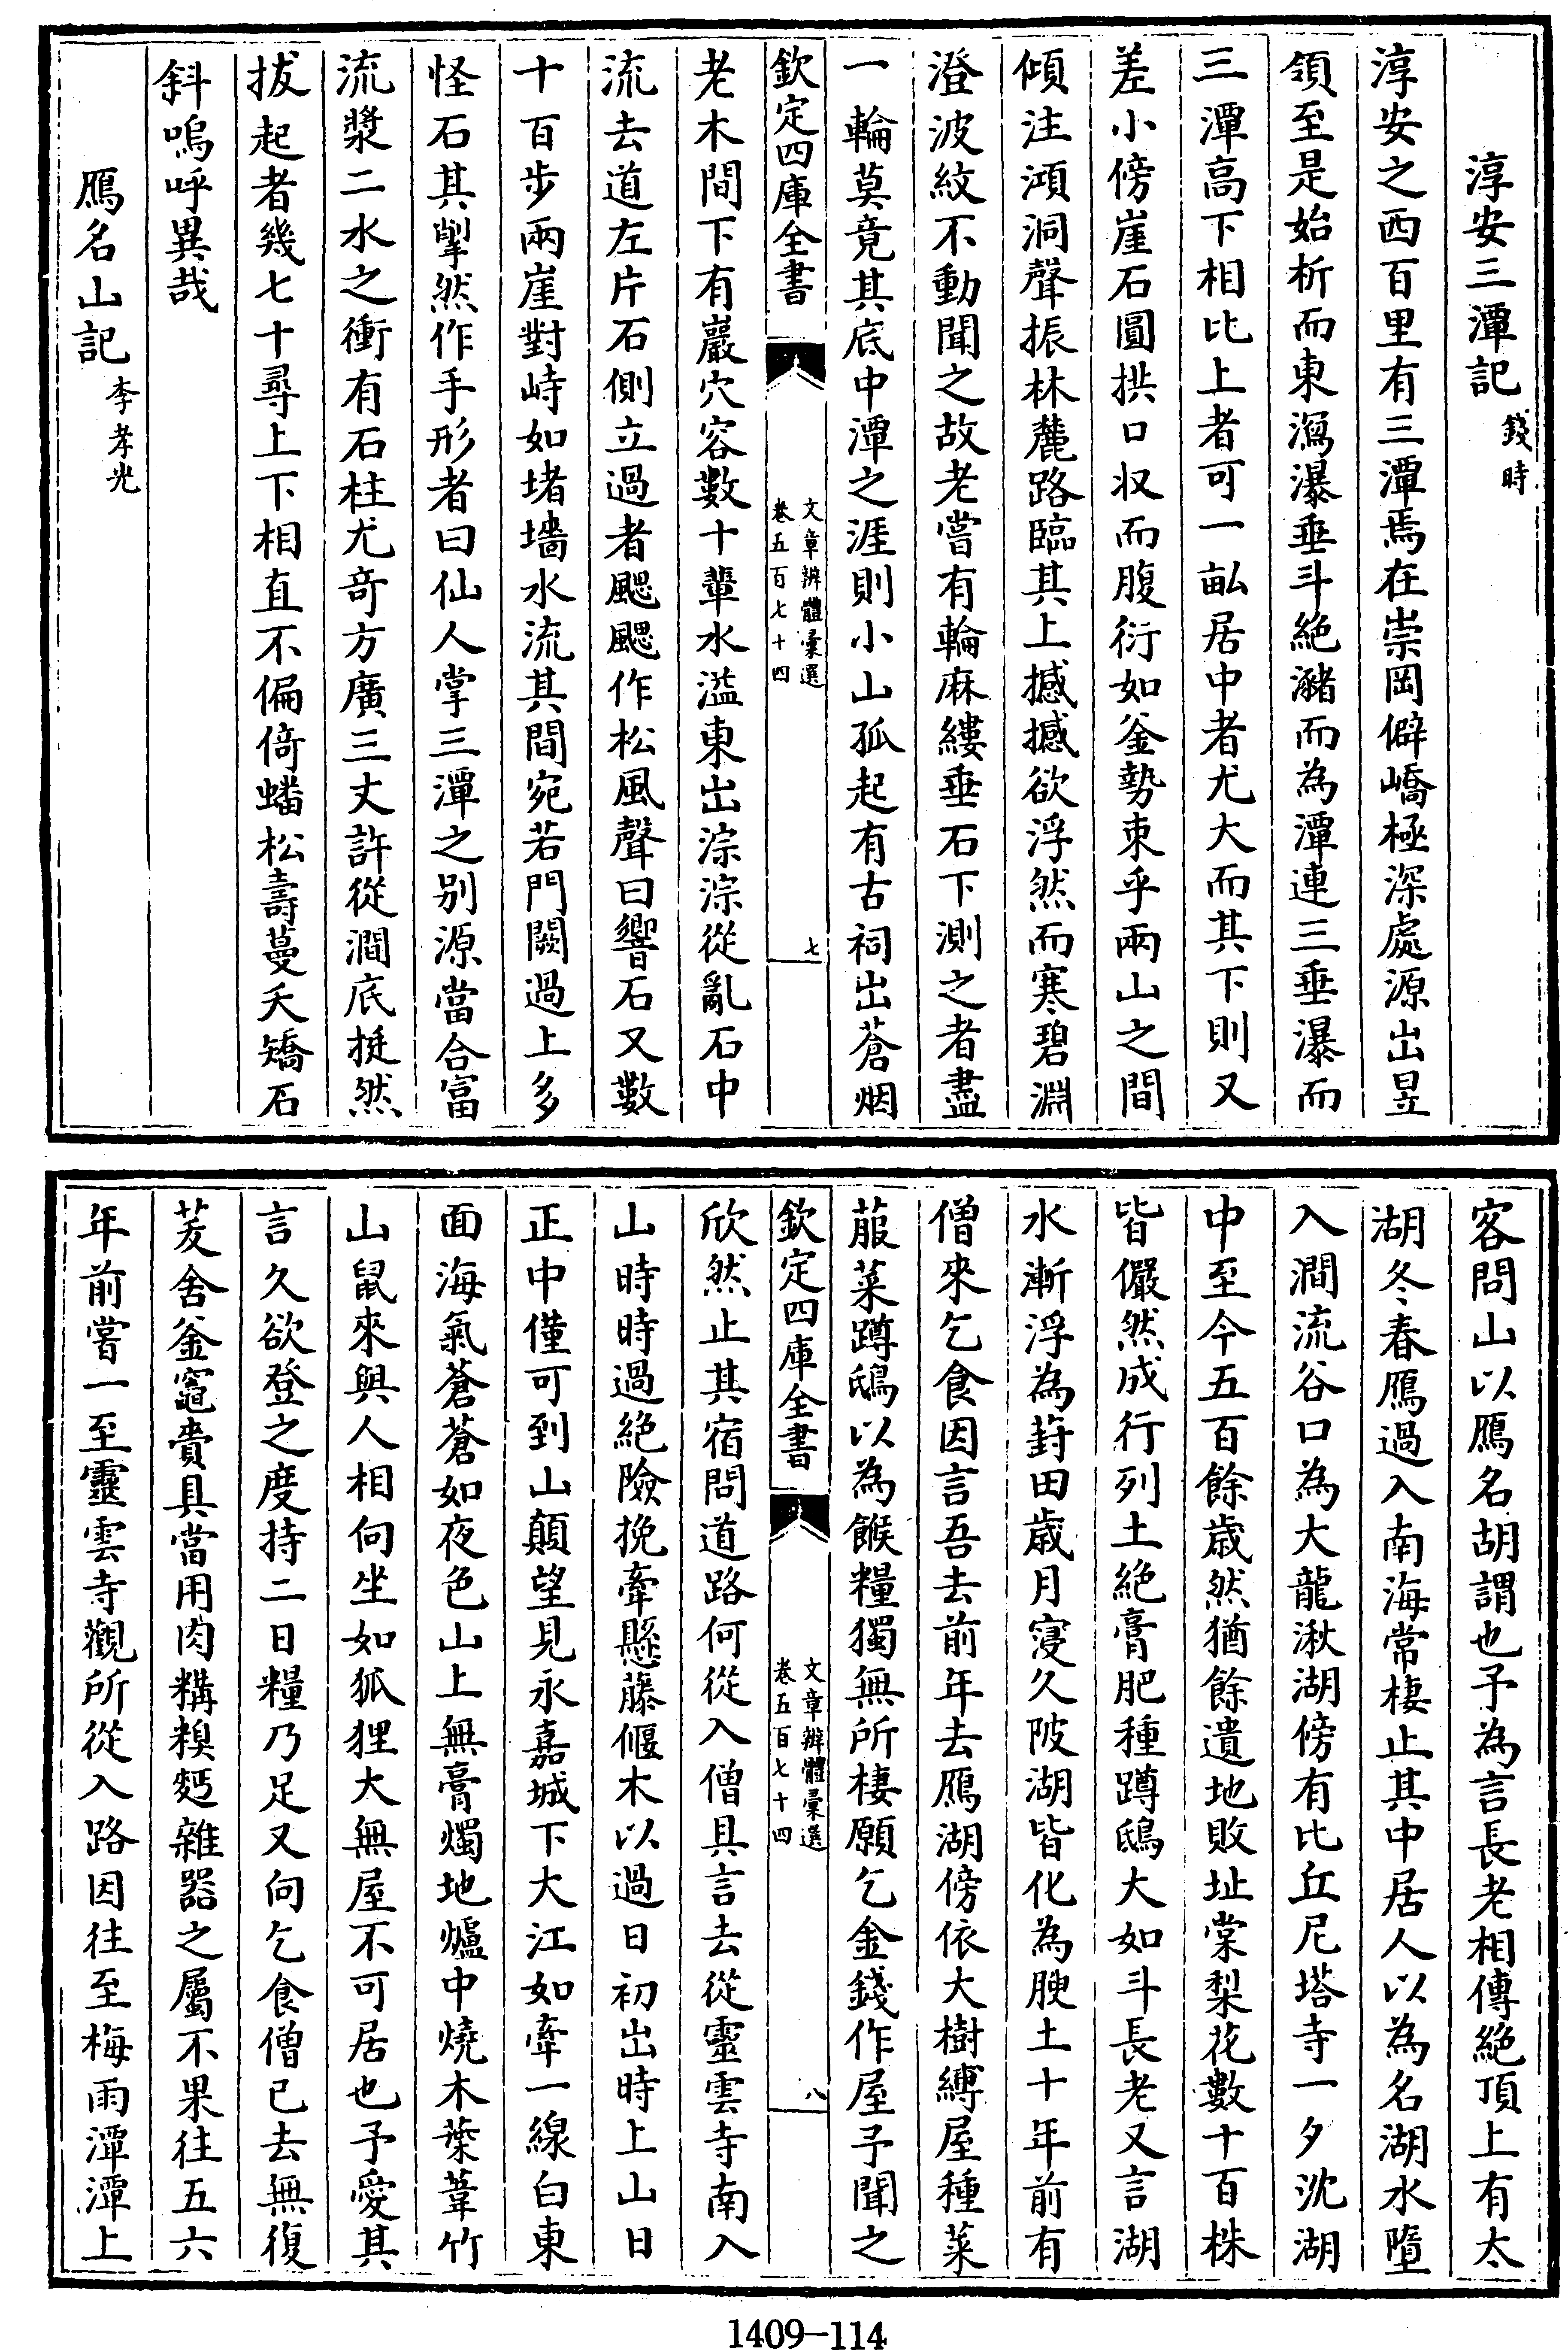 淳安三潭記 錢時
淳安之西百里有三潭焉在崇岡僻嶠極深處源出昱
領至是始析而東瀉瀑垂斗絶瀦而為潭連三垂瀑而
三潭高下相比上者可一畝居中者尤大而其下則又
差小傍崖石圓拱口収而腹衍如釜勢束乎兩山之間
傾注澒洞聲振林麓路臨其上撼撼欲浮然而寒碧淵
澄波紋不動聞之故老嘗有輪麻縷垂石下測之者盡
一輪莫竟其底中潭之涯則小山孤起有古祠出蒼烟
欽定四庫全書 文章辨體彚選 卷五百七十四 七
老木間下有巖穴容數十輩水溢東出淙淙從亂石中
流去道左片石側立過者颸颸作松風聲曰響石又數
十百步兩崖對峙如堵墻水流其間宛若門闕過上多
怪石其掔然作手形者曰仙人掌三潭之别源當合富
流漿二水之衝有石柱尤竒方廣三丈許從澗底挺然
拔起者幾七十尋上下相直不偏倚蟠松壽蔓夭矯石
斜嗚呼異哉
鴈名山記 李孝光
客問山以鴈名胡謂也予為言長老相傳絶頂上有太
湖冬春鴈過入南海常棲止其中居人以為名湖水墮
入澗流谷口為大龍湫湖傍有比丘尼塔寺一夕沈湖
中至今五百餘歲然猶餘遺地敗址棠梨花數十百株
皆儼然成行列土絶膏肥種蹲鴟大如斗長老又言湖
水漸浮為葑田歲月寖久陂湖皆化為腴土十年前有
僧來乞食因言吾去前年去鴈湖傍依大樹縛屋種菜
菔菜蹲鴟以為餱糧獨無所棲願乞金錢作屋予聞之
欽定四庫全書 文章辨體彚選 卷五百七十四 八
欣然止其宿問道路何從入僧具言去從靈雲寺南入
山時時過絶險挽牽懸藤偃木以過日初出時上山日
正中僅可到山顛望見永嘉城下大江如牽一線白東
面海氣蒼蒼如夜色山上無膏燭地爐中燒木葉葦竹
山鼠來與人相向坐如狐狸大無屋不可居也予愛其
言久欲登之度持二日糧乃足又向乞食僧已去無復
茇舍釜竈賫具當用肉糒糗麫雜器之屬不果往五六
年前嘗一至靈雲寺觀所從入路因往至梅雨潭潭上
1409-114